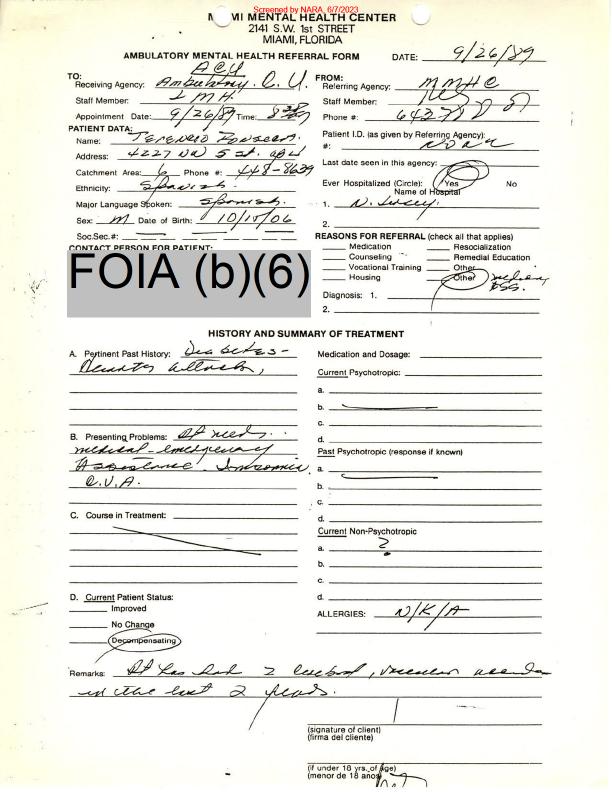 Screened by NARA, 6/7/2023
MIAMI MENTAL HEALTH CENTER
2141 S.W. 1st STREET
MIAMI, FLORIDA
AMBULATORY MENTAL HEALTH REFERRAL FORM DATE: 9/26/89
ACU
TO:
Receiving Agency: Ambulatory. C. U.
Staff Member:
Appointment Date: 9/26/89 Time:
PATIENT DATA:
Name:
Address: 4227 NW 5 st.
Catchment Area: 6 Phone #: 448-8639
Ethnicity: Spanish.
Major Language Spoken: Spanish.
Sex: M Date of Birth:
Soc.Sec.#:
CONTACT PERSON FOR PATIENT:
FOIA (b)(6)
FROM:
Referring Agency: MMHC
Staff Member:
Phone #:
Patient I.D. (as given by Referring Agency):
#:
Last date seen in this agency:
Ever Hospitalized (Circle): Yes No
Name of Hospital
1. N. Jersey.
2.
REASONS FOR REFERRAL (check all that applies)
Medication Resocialization
Counseling Remedial Education
Vocational Training Other
Housing Other
Diagnosis: 1.
2.
HISTORY AND SUMMARY OF TREATMENT
A. Pertinent Past History: Diabetes-
B. Presenting Problems: Pt needs
medical-emergency
Assistance. Insomnia,
C.V.A.
C. Course in Treatment:
D. Current Patient Status:
Improved
No Change
Decompensating
Medication and Dosage:
Current Psychotropic:
a.
b.
c.
d.
Past Psychotropic (response if known)
a.
b.
c.
d.
Current Non-Psychotropic
a. ?
b.
c.
d.
ALLERGIES: N/K/A
Remarks: Pt has had 2 cerebral, vascular
in the last 2 years.
(signature of client)
(firma del cliente)
(if under 18 yrs. of age)
(menor de 18 anos)